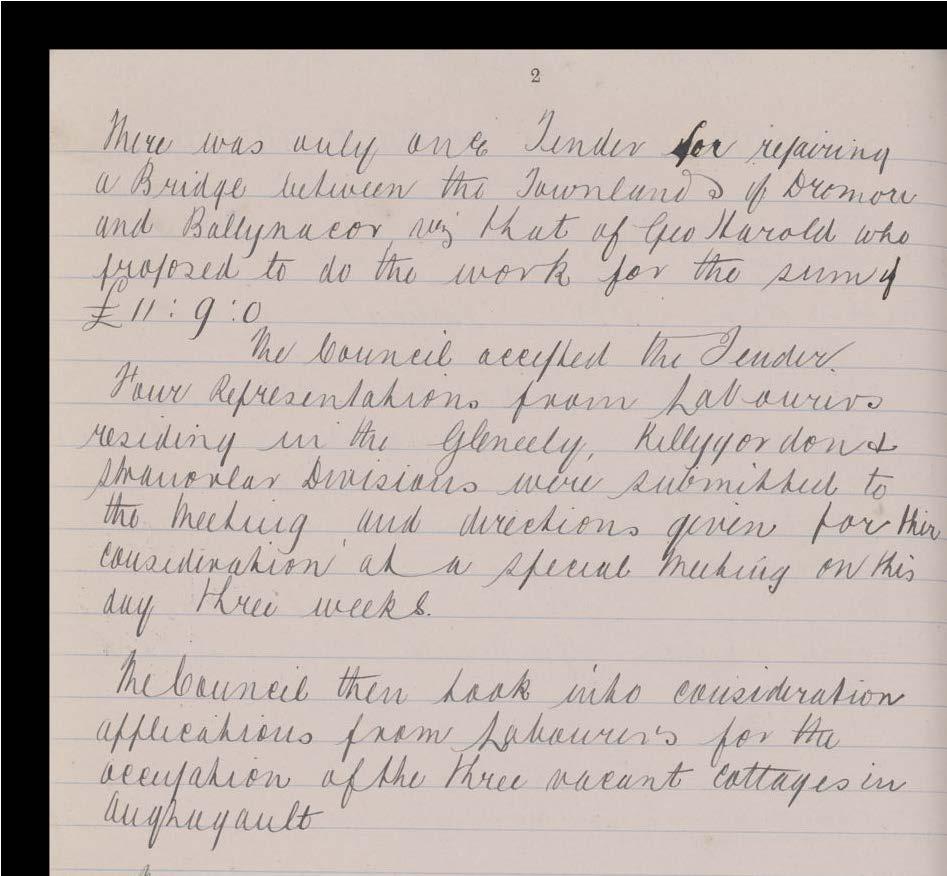 2
There was only one Tender for repairing
a Bridge between the Townlands of Dromore
and Ballynacor viz that of Geo Harold who
proposed to do the work for the sum of
£11:9:0
The Council accepted the Tender.
Four Representations from Labourers
residing in the Gleneely, Killygordon &
Stranorlar Divisions were submitted to
the Meeting and directions given for their
consideration at a special Meeting on this
day three weeks.
The Council then took into consideration
applications from Labourers for the
occupation of the three vacant Cottages in
Aughagault